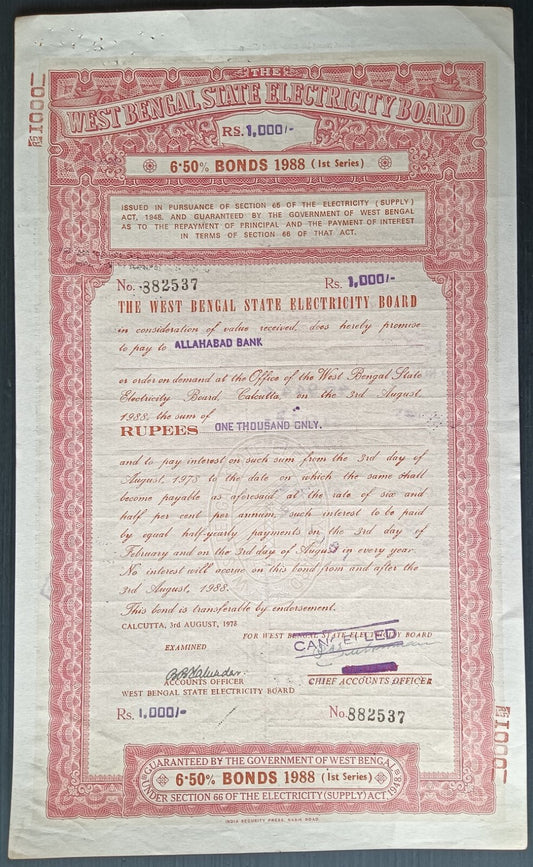 THE
WEST BENGAL STATE ELECTRICITY BOARD
RS. 1,000/-
6·50% BONDS 1988 (1st Series)
ISSUED IN PURSUANCE OF SECTION 65 OF THE ELECTRICITY (SUPPLY)
ACT, 1948. AND GUARANTEED BY THE GOVERNMENT OF WEST BENGAL
AS TO THE REPAYMENT OF PRINCIPAL AND THE PAYMENT OF INTEREST
IN TERMS OF SECTION 66 OF THAT ACT.
No. 882537 Rs. 1,000/-
THE WEST BENGAL STATE ELECTRICITY BOARD
in consideration of value received, does hereby promise
to pay to ALLAHABAD BANK
or order on demand at the Office of the West Bengal State
Electricity Board, Calcutta, on the 3rd August,
1988, the sum of
RUPEES ONE THOUSAND ONLY.
and to pay interest on such sum from the 3rd day of
August, 1978 to the date on which the same shall
become payable as aforesaid at the rate of six and
half per cent per annum, such interest to be paid
by equal half-yearly payments on the 3rd day of
February and on the 3rd day of August in every year.
No interest will accrue on this bond from and after the
3rd August, 1988.
This bond is transferable by endorsement.
CALCUTTA, 3rd AUGUST, 1978
FOR WEST BENGAL STATE ELECTRICITY BOARD
CANCELLED
EXAMINED
ACCOUNTS OFFICER
WEST BENGAL STATE ELECTRICITY BOARD
CHIEF ACCOUNTS OFFICER
Rs. 1,000/- No. 882537
GUARANTEED BY THE GOVERNMENT OF WEST BENGAL
6·50% BONDS 1988 (1st Series)
UNDER SECTION 66 OF THE ELECTRICITY (SUPPLY) ACT, 1948
INDIA SECURITY PRESS, NASIK ROAD.